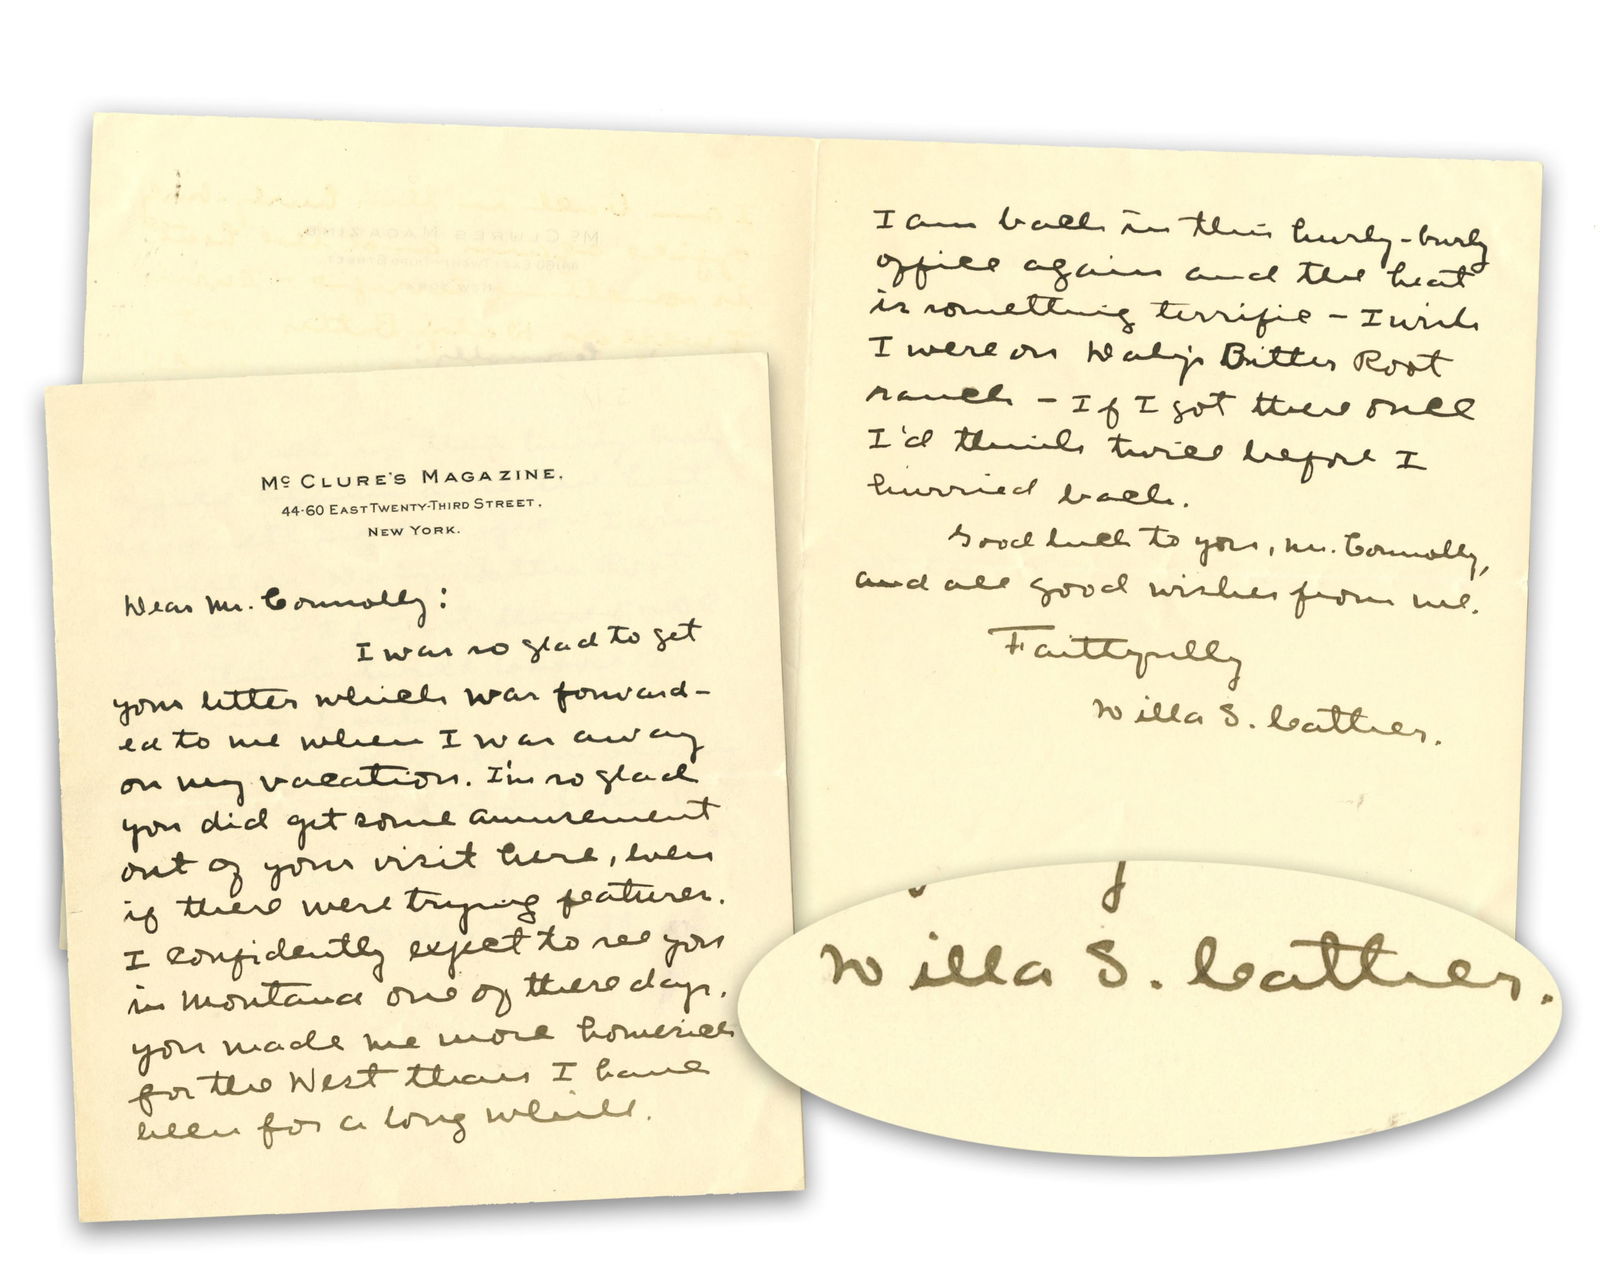 Mc CLURE'S MAGAZINE,
44-60 EAST TWENTY-THIRD STREET,
NEW YORK.
Dear Mr. Connolly:
I was so glad to get
your letter which was forward-
ed to me when I was away
on my vacation. I'm so glad
you did get some amusement
out of your visit here, even
if there were trying features.
I confidently expect to see you
in Montana one of these days.
You made me more homesick
for the West than I have
been for a long while.
I am back in this hurly-burly
office again and the heat
is something terrific – I wish
I were on Bitter Root
ranch – If I got there once
I'd think twice before I
hurried back.
Good luck to you, Mr. Connolly,
and all good wishes from me.
Faithfully
Willa S. Cather.
Willa S. Cather.